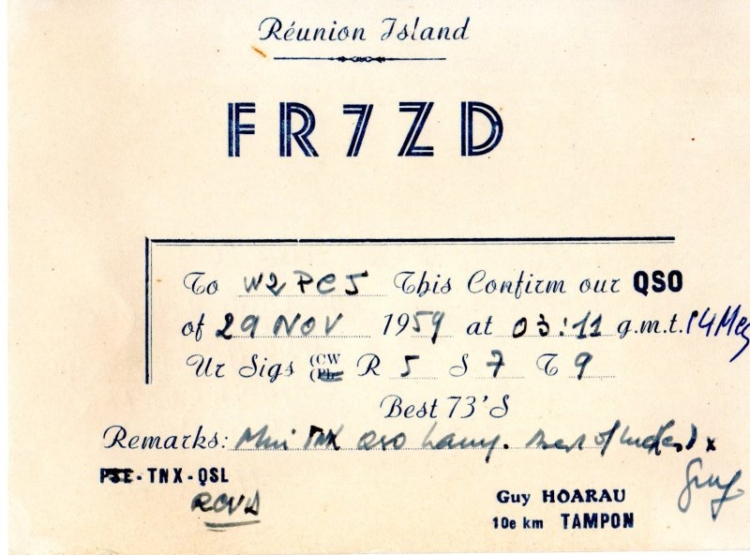 Réunion Island
FR7ZD
To W2PCJ This Confirm our QSO
of 29 NOV 1959 at 03:11 g.m.t. 14 Meg
Ur Sigs (CW R 5 S 7 T 9
(Ph
Best 73'S
Remarks: Mni TNX QSO Larry. Best of luck es Dx
PSE - TNX - QSL
RCVD
Guy
Guy HOARAU
10e km TAMPON